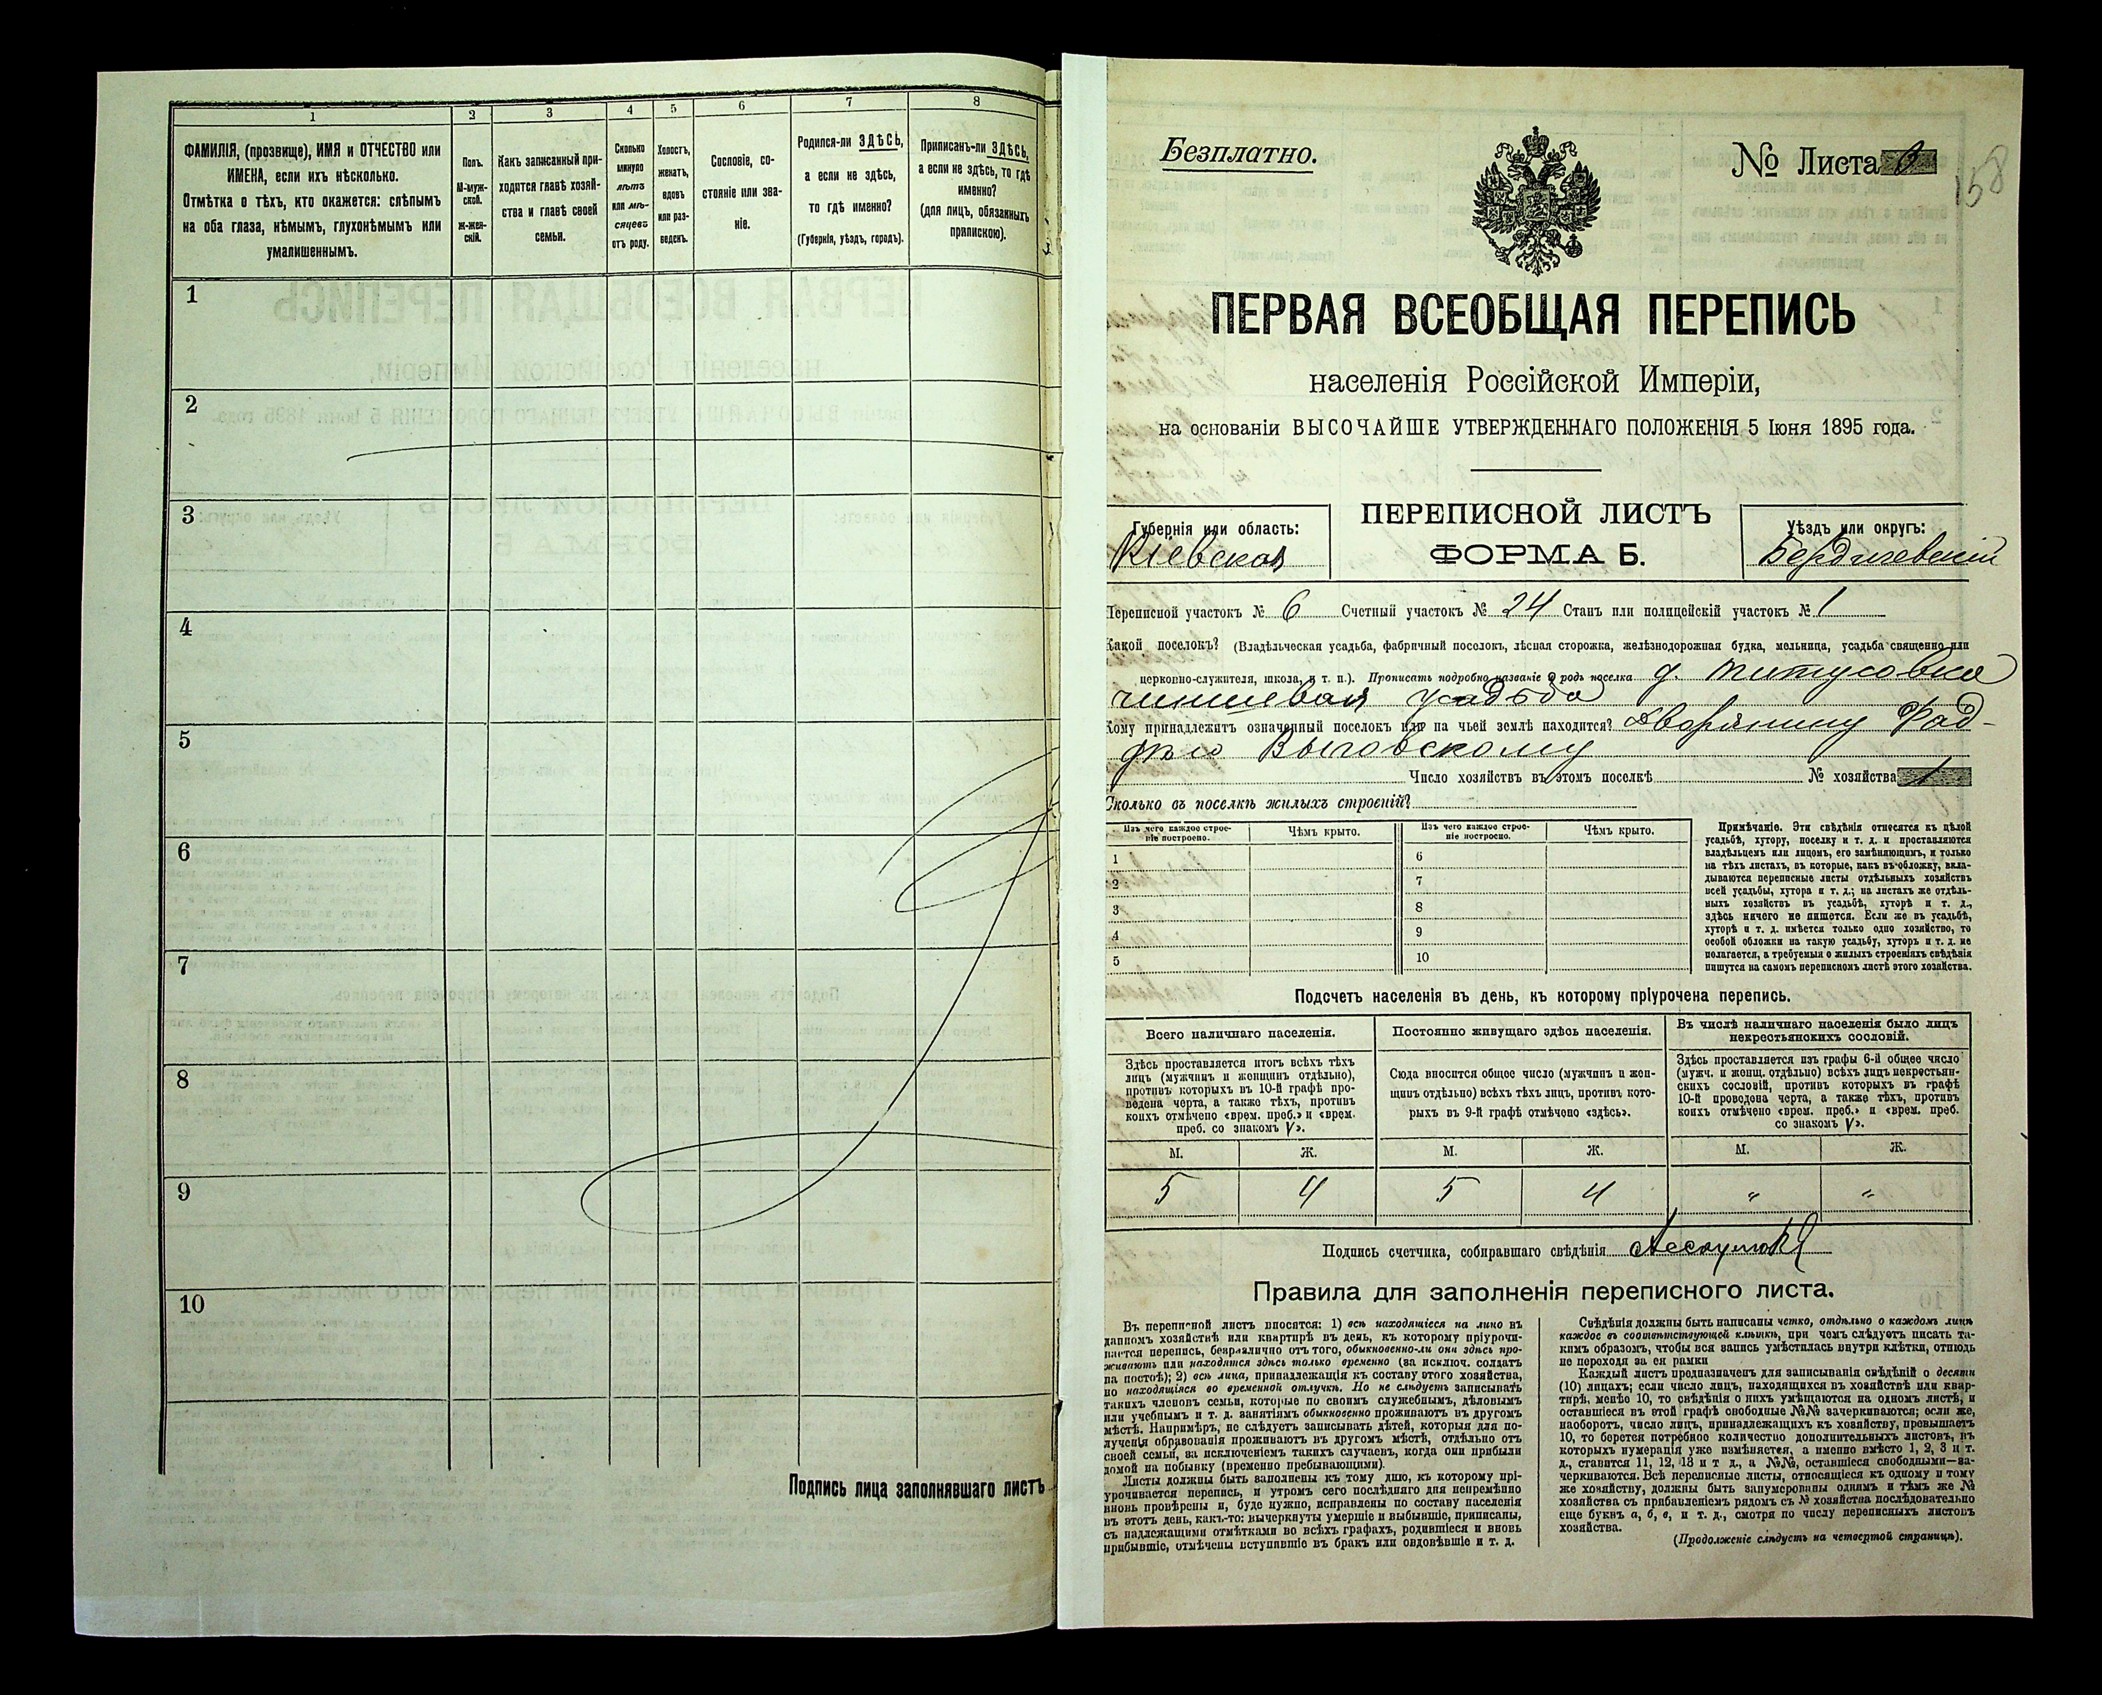 1
2
3
4
5
6
7
8
ФАМИЛІЯ, (прозвище), ИМЯ и ОТЧЕСТВО или
ИМЕНА, если ихъ нѣсколько.
Отмѣтка о тѣхъ, кто окажется: слѣпымъ
на оба глаза, нѣмымъ, глухонѣмымъ или
умалишеннымъ.
Полъ.
М-муж-
ской.
Ж-жен-
скій.
Какъ записанный при-
ходится главѣ хозяй-
ства и главѣ своей
семьи.
Сколько
минуло
лѣтъ
или мѣ-
сяцевъ
отъ роду.
Холостъ,
женатъ,
вдовъ
или раз-
веденъ.
Сословіе, со-
стояніе или зва-
ніе.
Родился-ли ЗДѢСЬ,
а если не здѣсь,
то гдѣ именно?
(Губернія, уѣздъ, городъ).
Приписанъ-ли ЗДѢСЬ,
а если не здѣсь, то гдѣ
именно?
(для лицъ, обязанныхъ
припискою).
1
2
3
4
5
6
7
8
9
10
Подпись лица заполнявшаго листъ
Безплатно.
№ Листа
158
ПЕРВАЯ ВСЕОБЩАЯ ПЕРЕПИСЬ
населенія Россійской Имперіи,
на основаніи ВЫСОЧАЙШЕ УТВЕРЖДЕННАГО ПОЛОЖЕНІЯ 5 Іюня 1895 года.
ПЕРЕПИСНОЙ ЛИСТЪ
ФОРМА Б.
Губернія или область:
Кіевская
Уѣздъ или округъ:
Бердичевскій
Переписной участокъ № 6 Счетный участокъ № 24 Станъ или полицейскій участокъ № 1
Какой поселокъ? (Владѣльческая усадьба, фабричный поселокъ, лѣсная сторожка, желѣзнодорожная будка, мельница, усадьба священно или
церковно-служителя, школа, и т. п.). Прописать подробно названіе и родъ поселка д. Титусовка
чиншевая усадьба
Кому принадлежитъ означенный поселокъ или на чьей землѣ находится? Дворянину Фад-
дѣю Выговскому
Число хозяйствъ въ этомъ поселкѣ № хозяйства 1
Сколько въ поселкѣ жилыхъ строеній?
Изъ чего каждое строе-
ніе построено.
Чѣмъ крыто.
Изъ чего каждое строе-
ніе построено.
Чѣмъ крыто.
1
2
3
4
5
6
7
8
9
10
Примѣчаніе. Эти свѣдѣнія относятся къ цѣлой
усадьбѣ, хутору, поселку и т. д. и проставляются
владѣльцемъ или лицомъ, его замѣняющимъ, и только
на тѣхъ листахъ, въ которые, какъ въ обложку, вкла-
дываются переписные листы отдѣльныхъ хозяйствъ
всей усадьбы, хутора и т. д.; на листахъ же отдѣль-
ныхъ хозяйствъ въ усадьбѣ, хуторѣ и т. д.,
здѣсь ничего не пишется. Если же въ усадьбѣ,
хуторѣ и т. д. имѣется только одно хозяйство, то
особой обложки на такую усадьбу, хуторъ и т. д. не
полагается, а требуемыя о жилыхъ строеніяхъ свѣдѣнія
пишутся на самомъ переписномъ листѣ этого хозяйства.
Подсчетъ населенія въ день, къ которому пріурочена перепись.
Всего наличнаго населенія.
Постоянно живущаго здѣсь населенія.
Въ числѣ наличнаго населенія было лицъ
некрестьянскихъ сословій.
Здѣсь проставляется итогъ всѣхъ тѣхъ
лицъ (мужчинъ и женщинъ отдѣльно),
противъ которыхъ въ 10-й графѣ про-
ведена черта, а также тѣхъ, противъ
коихъ отмѣчено «врем. преб.» и «врем.
преб. со знакомъ V».
Сюда вносится общее число (мужчинъ и жен-
щинъ отдѣльно) всѣхъ тѣхъ лицъ, противъ кото-
рыхъ въ 9-й графѣ отмѣчено «здѣсь».
Здѣсь проставляется изъ графы 6-й общее число
(мужч. и женщ. отдѣльно) всѣхъ лицъ некрестьян-
скихъ сословій, противъ которыхъ въ графѣ
10-й проведена черта, а также тѣхъ, противъ
коихъ отмѣчено «врем. преб.» и «врем. преб.
со знакомъ V».
М. Ж. М. Ж. М. Ж.
5 4 5 4 " "
Подпись счетчика, собиравшаго свѣдѣнія
Правила для заполненія переписного листа.
Въ переписной листъ вносятся: 1) всѣ находящіеся на лицо въ
данномъ хозяйствѣ или квартирѣ въ день, къ которому пріурочи-
вается перепись, безразлично отъ того, обыкновенно-ли они здѣсь про-
живаютъ или находятся здѣсь только временно (за исключ. солдатъ
на постоѣ); 2) всѣ лица, принадлежащія къ составу этого хозяйства,
но находящіяся во временной отлучкѣ. Но не слѣдуетъ записывать
такихъ членовъ семьи, которые по своимъ служебнымъ, дѣловымъ
или учебнымъ и т. д. занятіямъ обыкновенно проживаютъ въ другомъ
мѣстѣ. Напримѣръ, не слѣдуетъ записывать дѣтей, которыя для по-
лученія образованія проживаютъ въ другомъ мѣстѣ, отдѣльно отъ
своей семьи, за исключеніемъ такихъ случаевъ, когда они прибыли
домой на побывку (временно пребывающими).
Листы должны быть заполнены къ тому дню, къ которому прі-
урочивается перепись, и утромъ сего послѣдняго дня непремѣнно
вновь провѣрены и, буде нужно, исправлены по составу населенія
въ этотъ день, какъ-то: вычеркнуты умершіе и выбывшіе, приписаны,
съ надлежащими отмѣтками во всѣхъ графахъ, родившіеся и вновь
прибывшіе, отмѣчены вступившіе въ бракъ или овдовѣвшіе и т. д.
Свѣдѣнія должны быть написаны четко, отдѣльно о каждомъ лицѣ
каждое въ соотвѣтствующей клѣткѣ, при чемъ слѣдуетъ писать та-
кимъ образомъ, чтобы вся запись умѣстилась внутри клѣтки, отнюдь
не переходя за ея рамки
Каждый листъ предназначенъ для записыванія свѣдѣній о десяти
(10) лицахъ; если число лицъ, находящихся въ хозяйствѣ или квар-
тирѣ, менѣе 10, то свѣдѣнія о нихъ умѣщаются на одномъ листѣ, и
оставшіеся въ этой графѣ свободные №№ зачеркиваются; если же,
наоборотъ, число лицъ, принадлежащихъ къ хозяйству, превышаетъ
10, то берется потребное количество дополнительныхъ листовъ, въ
которыхъ нумерація уже измѣняется, а именно вмѣсто 1, 2, 3 и т.
д., ставится 11, 12, 13 и т д., а №№, оставшіеся свободными—за-
черкиваются. Всѣ переписные листы, относящіеся къ одному и тому
же хозяйству, должны быть занумерованы однимъ и тѣмъ же №
хозяйства съ прибавленіемъ рядомъ съ № хозяйства послѣдовательно
еще буквъ а, б, в, и т. д., смотря по числу переписныхъ листовъ
хозяйства.
(Продолженіе слѣдуетъ на четвертой страницѣ).